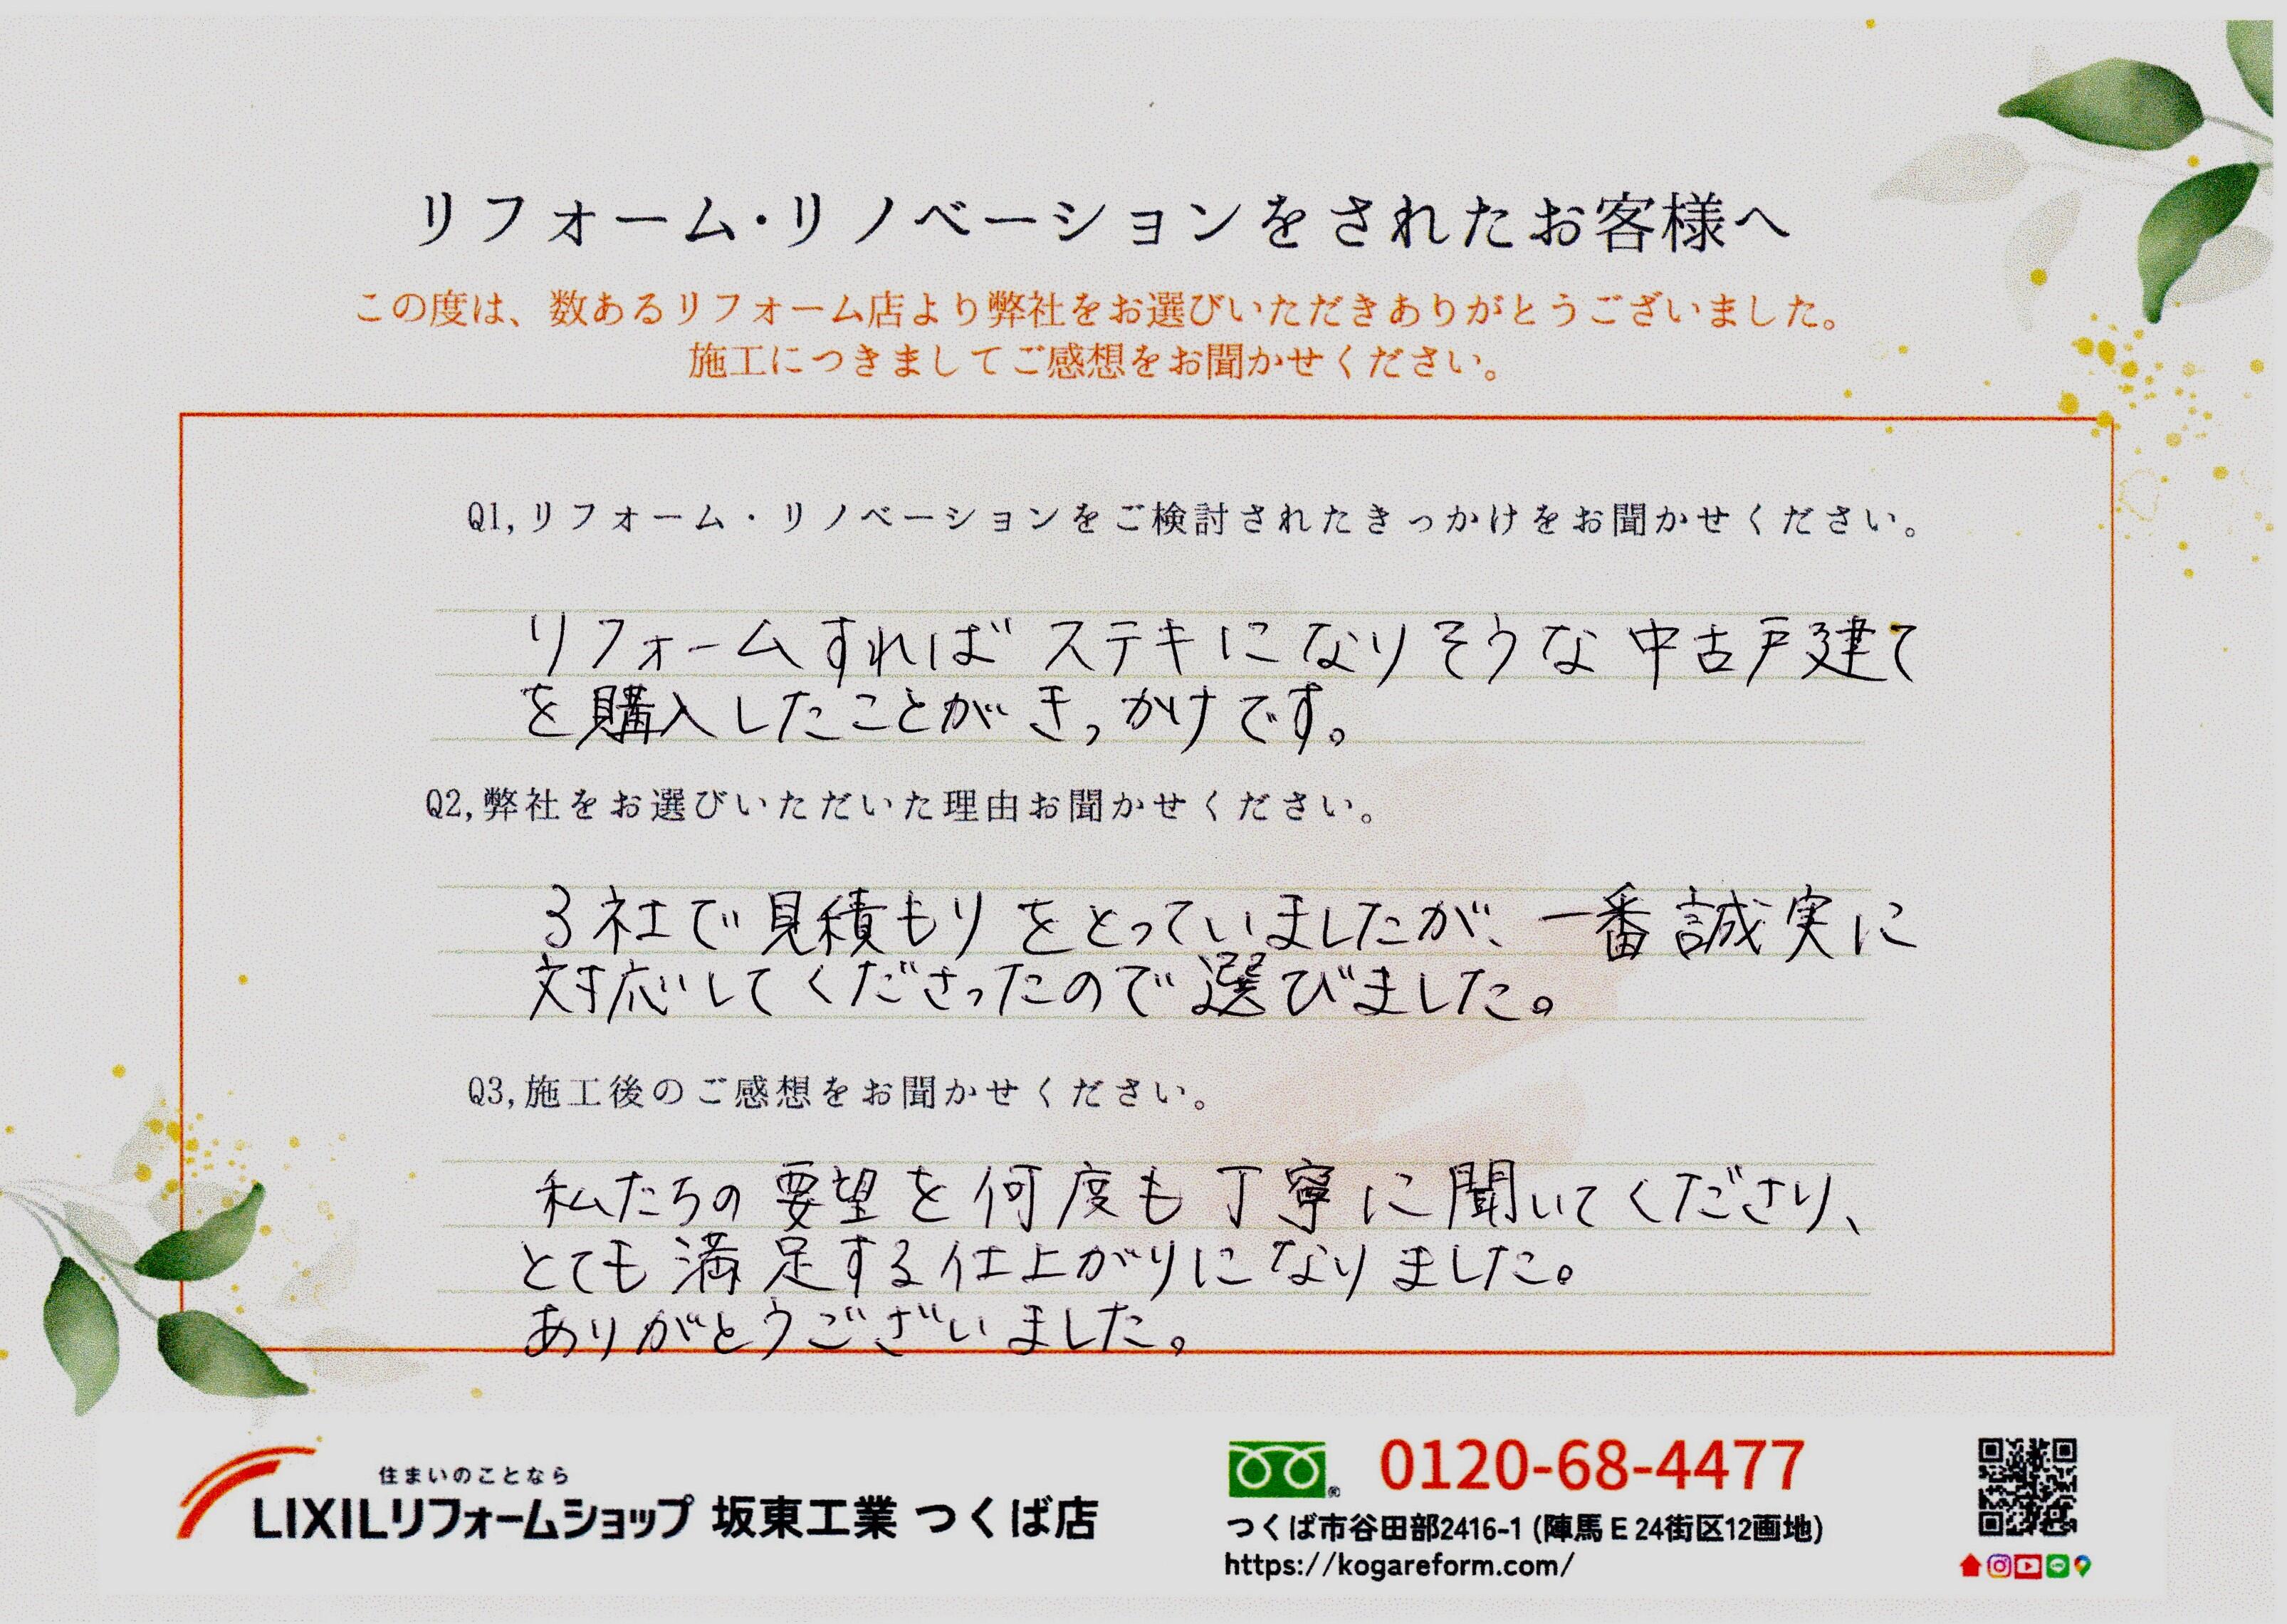 リフォーム・リノベーションをされたお客様へ
この度は、数あるリフォーム店より弊社をお選びいただきありがとうございました。
施工につきましてご感想をお聞かせください。
Q1,リフォーム・リノベーションをご検討されたきっかけをお聞かせください。
リフォームすればステキになりそうな中古戸建て
を購入したことがきっかけです。
Q2,弊社をお選びいただいた理由お聞かせください。
3社で見積もりをとっていましたが、一番誠実に
対応してくださったので選びました。
Q3,施工後のご感想をお聞かせください。
私たちの要望を何度も丁寧に聞いてくださり、
とても満足する仕上がりになりました。
ありがとうございました。
住まいのことなら
LIXILリフォームショップ 坂東工業 つくば店
0120-68-4477
つくば市谷田部2416-1 (陣馬E24街区12画地)
https://kogareform.com/